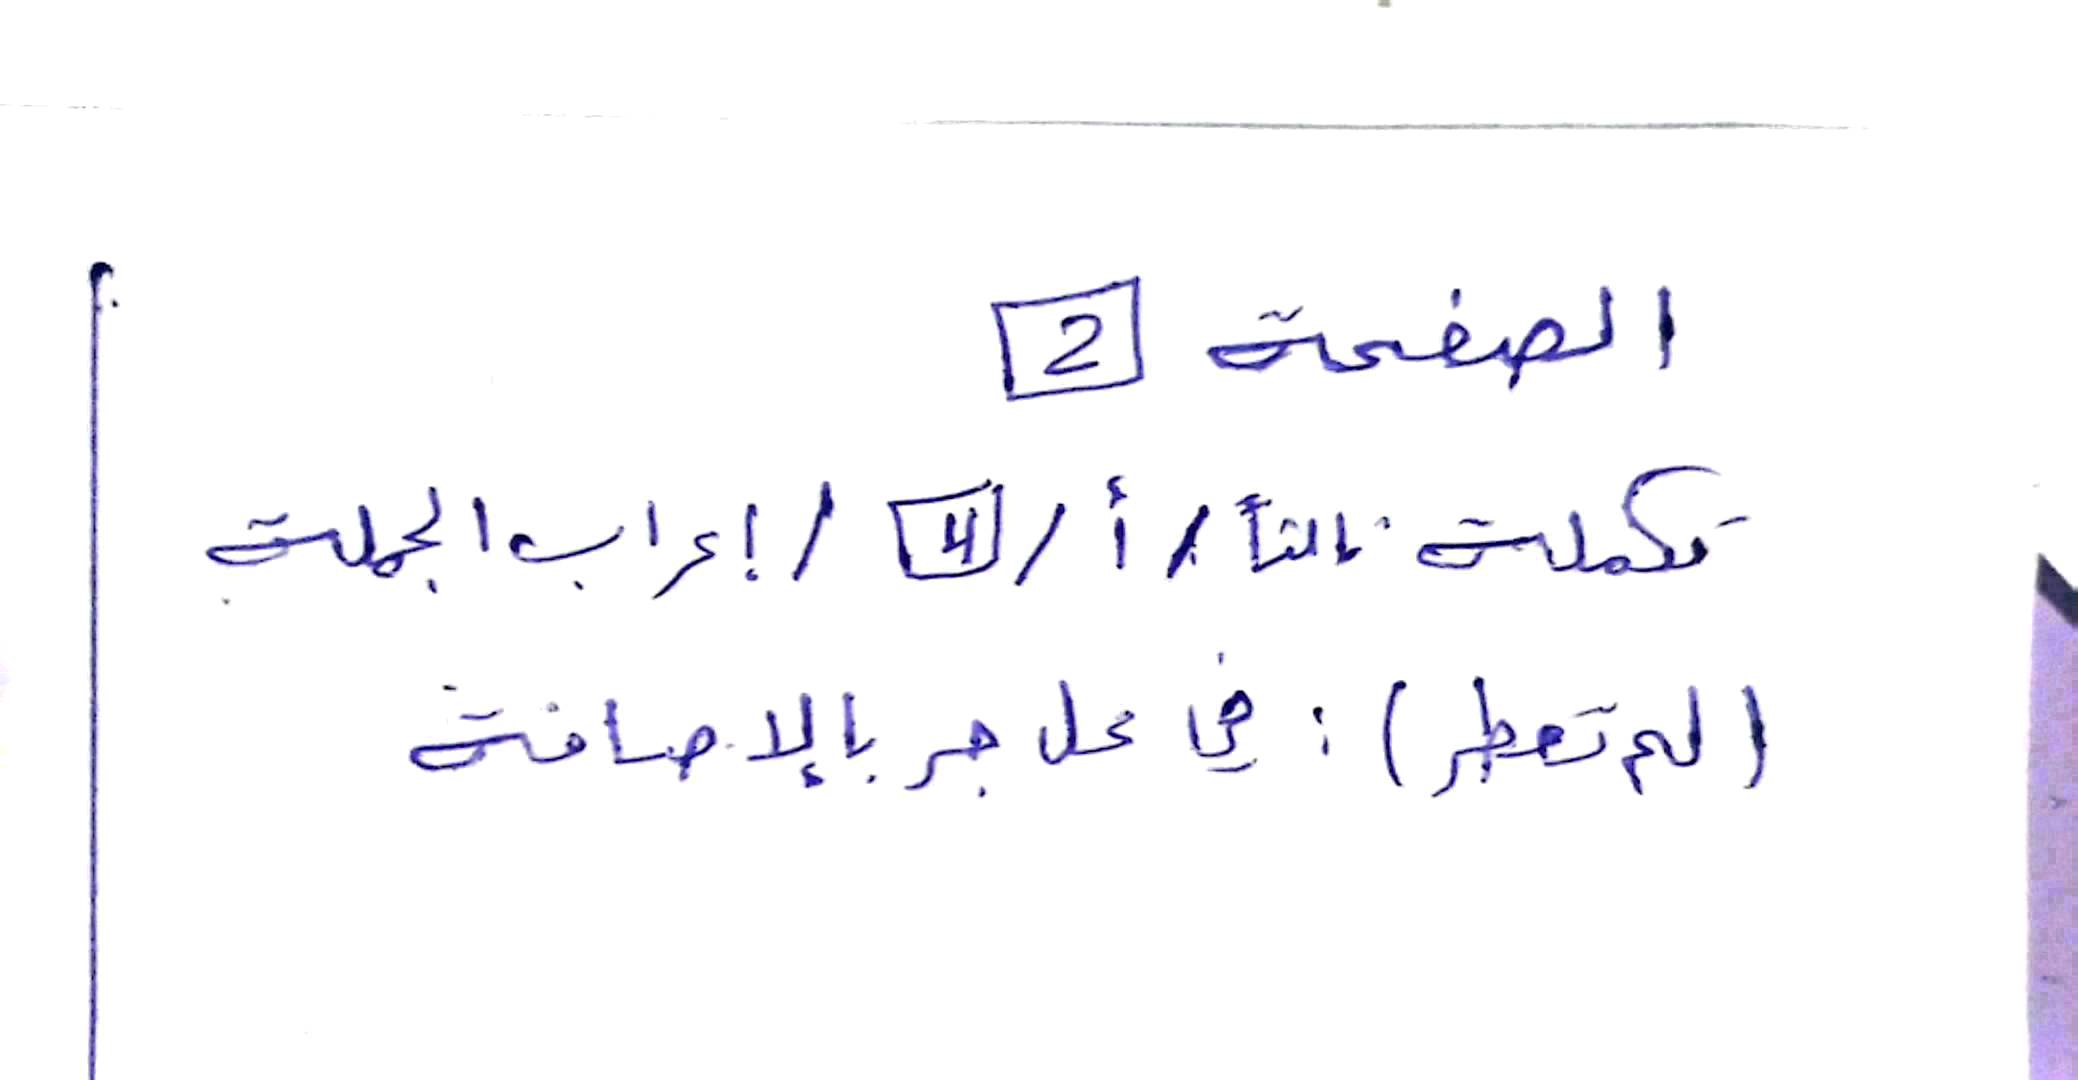 الصفحة 2
تكملة ثالثاً / أ / 4 / إعراب الجملة
(لم تعطر) : في محل جر بالإضافة